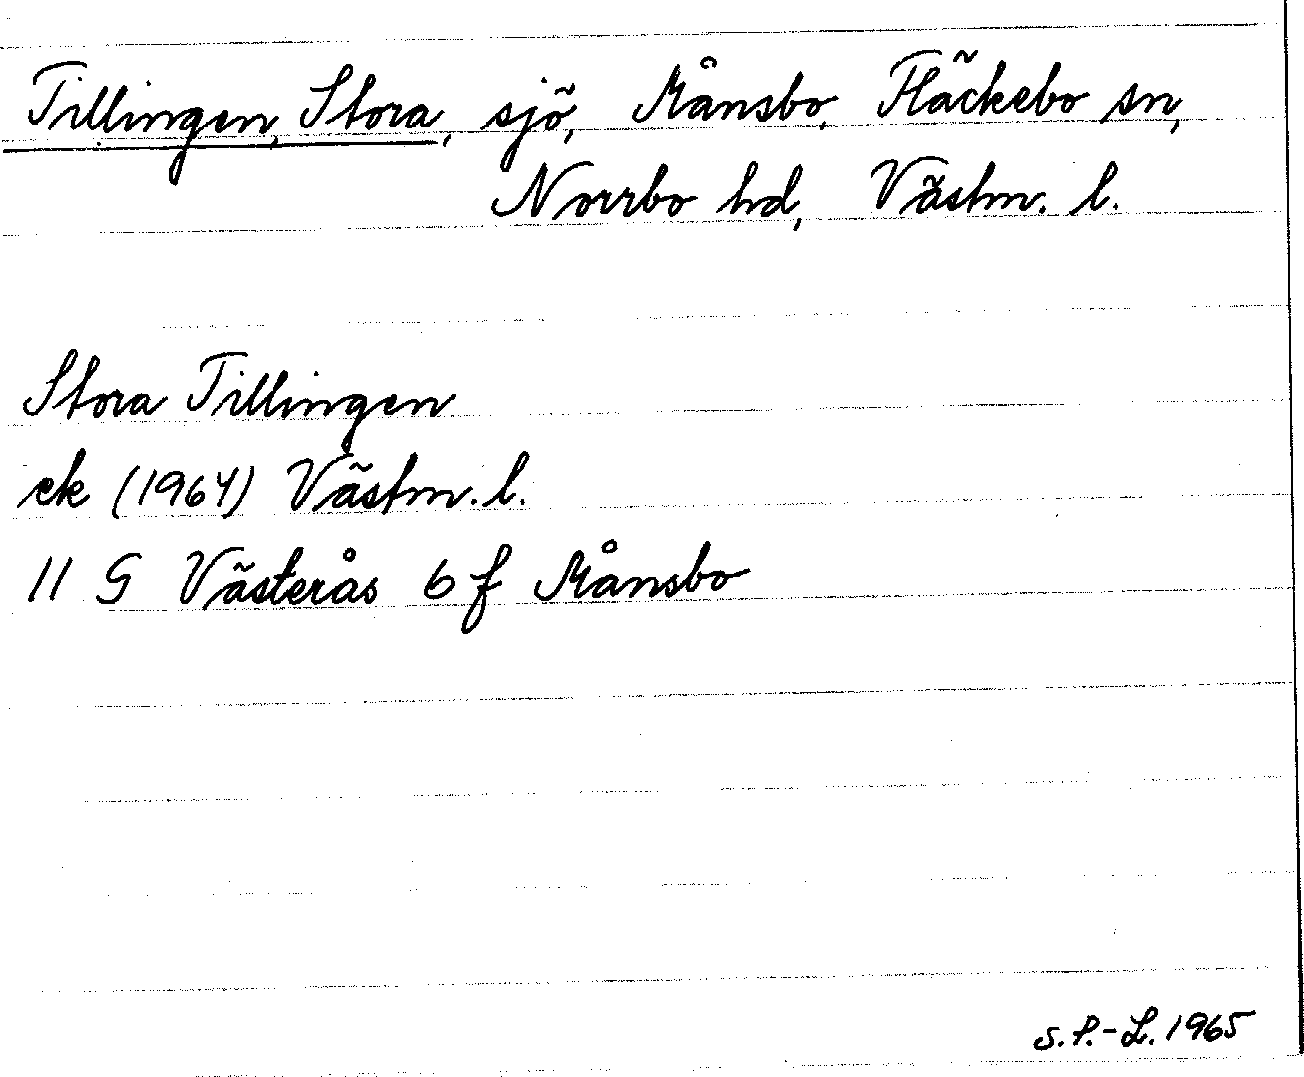 Tillingen, Stora, sjö, Månsbo, Fläckebo sn,
Norrbo hd, Västm. l.
Stora Tillingen
ek (1964) Västm. l.
11 G Västerås 6 f Månsbo
S.P.-L. 1965